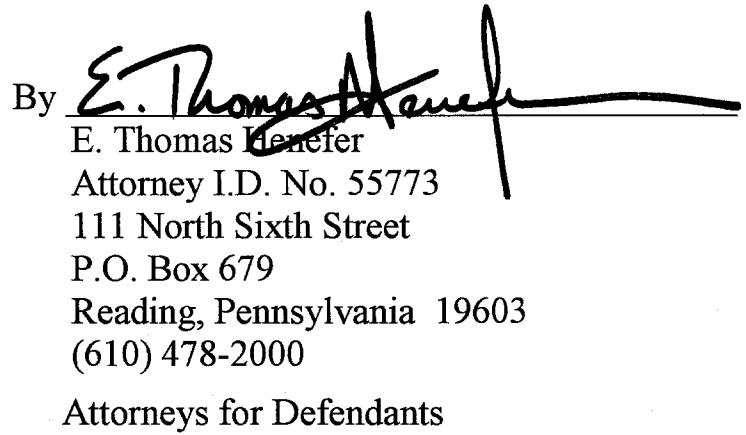 By E. Thomas Henefer
E. Thomas Henefer
Attorney I.D. No. 55773
111 North Sixth Street
P.O. Box 679
Reading, Pennsylvania 19603
(610) 478-2000
Attorneys for Defendants